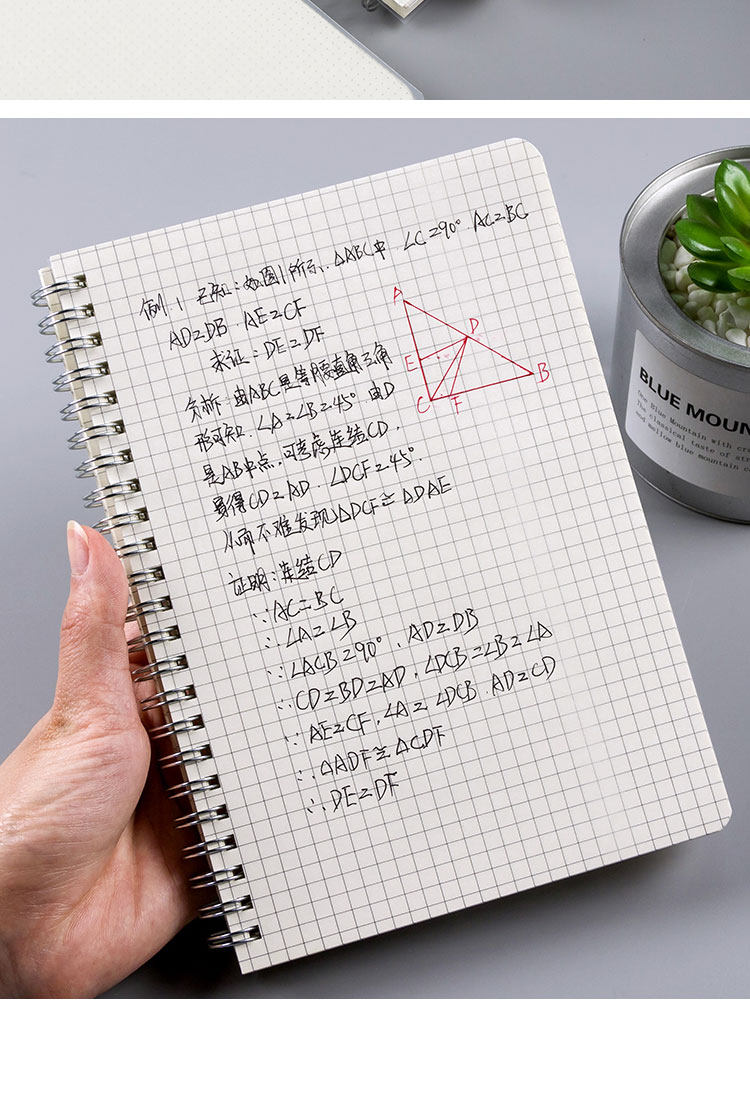 例.1 已知:如图1所示.△ABC中.∠C=90°.AC=BC
AD=DB AE=CF
求证:DE=DF
分析:由ABC是等腰直角三角
形可知.∠A=∠B=45°由D
是AB中点,可考虑连结CD.
易得CD=AD.∠DCF=45°
从而不难发现△DCF≅△DAE
证明:连结CD
∵AC=BC
∴∠A=∠B
∵∠ACB=90°.AD=DB
∴CD=BD=AD.∠DCB=∠B=∠A
∵AE=CF.∠A=∠DCB.AD=CD
∴△ADF≅△CDF
∴DE=DF
A
D
E
B
C
F
BLUE MOUN
One Blue Mountain with
The classical taste of
and mellow blue mountain